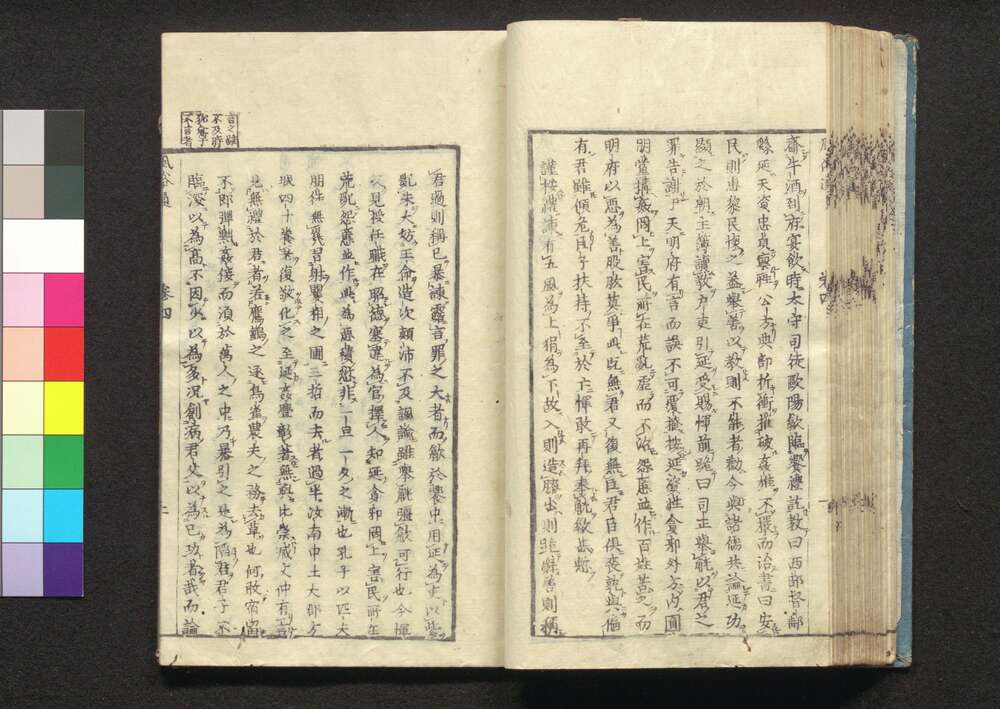 齋牛酒到府宴飲時太守司徒歐陽歙臨饗禮訖教曰西部督郵
繇延天資忠貞稟性公方典部折衝摧破姦雄不嚴而治書曰安
民則惠黎民懷之蓋舉善以教則不能者勸今與諸儒共論延功
顯之於朝主簿讀教戶吏引延受賜惲前跪曰司正舉觥以君之
罪告謝于天明府有言而誤不可覆掩按延資性貪邪外方内圓
朋黨搆姦罔上害民所在荒亂虐而不治怨慝並作百姓苦之而
明府以惡為善股肱莫爭此既無君又復無臣君臣俱喪孰與偏
有君雖傾危臣子扶持不至於亡惲敢再拜奉觥歙甚慙
謹按禮諫有五風為上狷為下故入則造膝出則詭辭善則稱
君過則稱已暴諫露言罪之大者而歙於饗中用延為吏以紫
亂朱大妨王命造次顛沛不及諷諭雖舉觥彊歙可行也今惲
久見授任職在昭德塞違為官擇人知延貪邪罔上害民所在
荒亂怨慝並作此為惡積愆非一旦一夕之漸也孔子以匹夫
朋徒無幾習射矍相之圃三哲而去者過半汝南中土大郡方
城四十養老復敬化之至延姦釁彰著無與比崇臧文仲有言
見無禮於君者若鷹鸇之逐鳥雀農夫之務去草也何敢宿留
不即彈黜姦佞而須於萬人之中乃暴引之是為陷君君子不
臨深以為高不因少以為多況創病君父以為已功者哉而論
風俗通
卷四
言之疑
不及
不言者